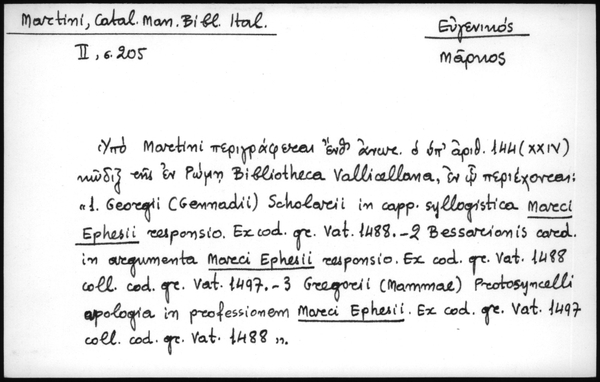 Martini, Catal. Man. Bibl. Ital.
II, σ. 205
Εὐγενικός
Μᾶρκος
Ὑπό Martini περιγράφεται ἔνθ' ἀνωτ. ὁ ὑπ' ἀριθ. 144 (XXIV)
κῶδιξ τῆς ἐν Ρώμῃ Bibliotheca Vallicellana, ἐν ᾧ περιέχονται:
«1. Georgii (Gennadii) Scholarii in capp. syllogistica Marci
Ephesii responsio. Ex cod. gr. Vat. 1488. - 2 Bessarionis card.
in argumenta Marci Ephesii responsio. Ex cod. gr. Vat. 1488
coll. cod. gr. Vat. 1497. - 3 Gregorii (Mammae) Protosyncelli
apologia in professionem Marci Ephesii. Ex cod. gr. Vat. 1497
coll. cod. gr. Vat. 1488 ».